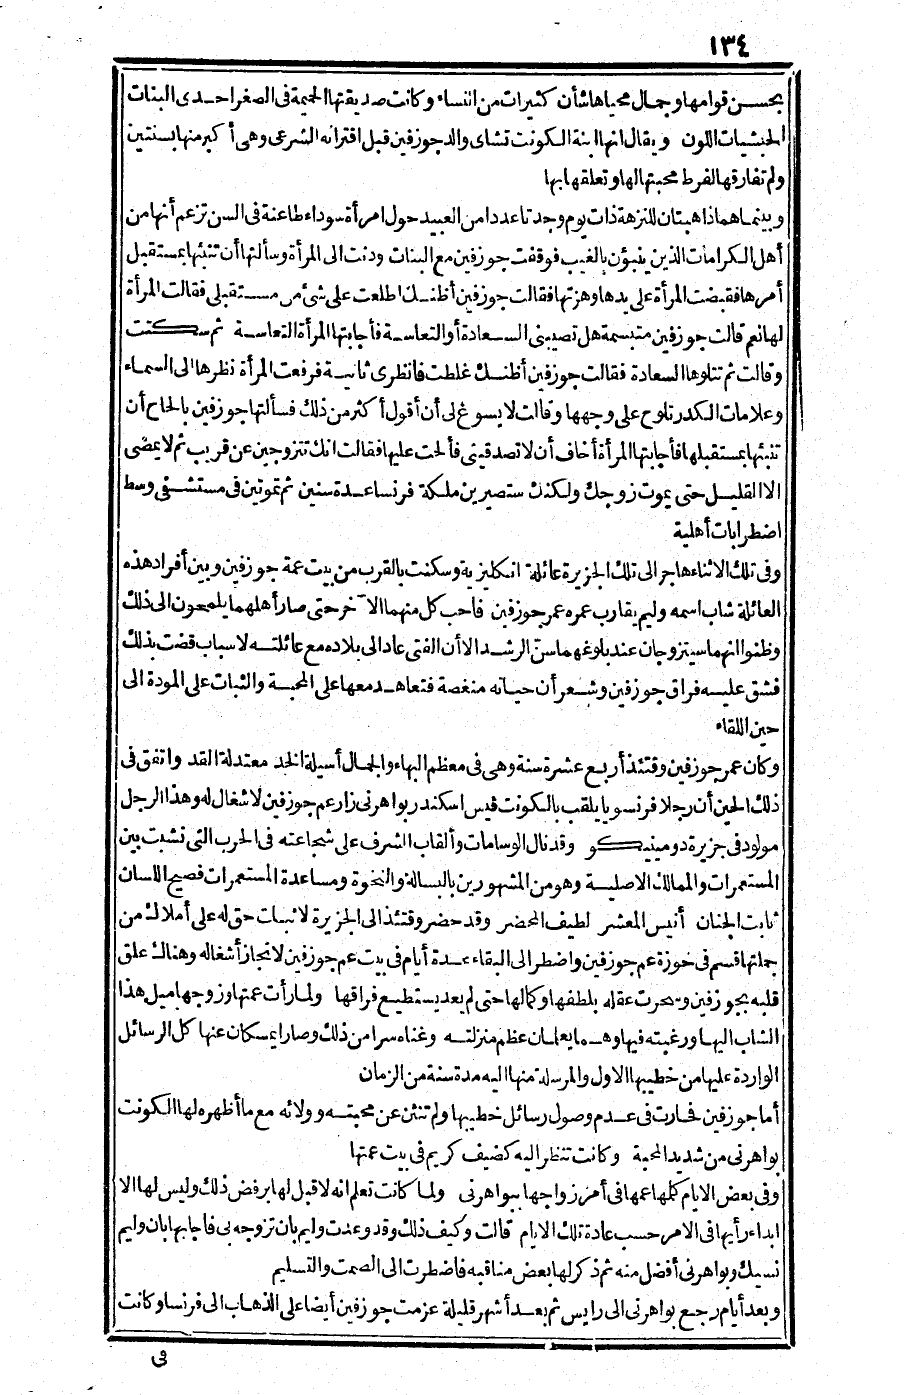 ١٣٤
بحسن قوامها وجمال محياها شأن كثيرات من النساء وكانت صديقتها الحميمة فى الصغر احدى البنات
الحبشيات اللون ويقال انها ابنة الكونت تشاى والد جوزفين قبل اقترانه الشرعى وهى أكبر منها بسنتين
ولم تفارقها لفرط محبتها لها وتعلقها بها
وبينما هما ذاهبتان للنزهة ذات يوم وجدتا عددا من العبيد حول امرأة سوداء طاعنة فى السن تزعم أنها من
أهل الكرامات الذين ينبؤن بالغيب فوقفت جوزفين مع البنات ودنت الى المرأة وسألتها أن تنبئها بمستقبل
أمرها فقبضت المرأة على يدها وهزتها فقالت جوزفين أظنك اطلعت على شئ من مستقبلى فقالت المرأة
لها نعم قالت جوزفين متبسمة هل نصيبى السعادة أو التعاسة فأجابتها المرأة التعاسة ثم سكتت
وقالت ثم تتلوها السعادة فقالت جوزفين أظنك غلطت فانظرى ثانية فرفعت المرأة نظرها الى السماء
وعلامات الكدر تلوح على وجهها وقالت لا يسوغ لى أن أقول أكثر من ذلك فسألتها جوزفين بالحاح أن
تنبئها بمستقبلها فأجابتها المرأة أخاف أن لا تصدقينى فألحت عليها فقالت انك تتزوجين عن قريب ثم لا يمضى
الا القليل حتى يموت زوجك ولكنك ستصيرين ملكة فرنسا عدة سنين ثم تموتين فى مستشفى وسط
اضطرابات أهلية
وفى تلك الاثناء هاجر الى تلك الجزيرة عائلة انكليزية وسكنت بالقرب من بيت عمة جوزفين وبين أفراد هذه
العائلة شاب اسمه وليم يقارب عمره عمر جوزفين فاحب كل منهما الآخر حتى صار أهلهما يلمعون الى ذلك
وظنوا انهما سيتزوجان عند بلوغهما سنّ الرشد الا أن الفتى عاد الى بلاده مع عائلته لاسباب قضت بذلك
فشق عليه فراق جوزفين وشعر أن حياته منغصة فتعاهد معها على المحبة والثبات على المودة الى
حين اللقاء
وكان عمر جوزفين وقتئذ أربع عشرة سنة وهى فى معظم البهاء والجمال أسيلة الخد معتدلة القد واتفق فى
ذلك الحين أن رجلا فرنسويا يلقب بالكونت فيس اسكندر بواهرنى زار عم جوزفين لاشغال له وهذا الرجل
مولود فى جزيرة دومينيكو وقد نال الوسامات وألقاب الشرف على شجاعته فى الحرب التى نشبت بين
المستعمرات والممالك الاصلية وهو من المشهورين بالبسالة والنخوة ومساعدة المستعمرات فصيح اللسان
ثابت الجنان أنيس المعشر لطيف المحضر وقد حضر وقتئذ الى الجزيرة لاثبات حق له على أملاك من
جملتها قسم فى حوزة عم جوزفين واضطر الى البقاء عدة أيام فى بيت عم جوزفين لانجاز أشغاله وهناك علق
قلبه بجوزفين وسحرت عقله بلطفها وكمالها حتى لم يعد يستطيع فراقها ولما رأت عمتها وزوجها ميل هذا
الشاب اليها ورغبته فيها وهما يعلمان عظم منزلته وغناه سرا من ذلك وصارا يمسكان عنها كل الرسائل
الواردة عليها من خطيبها الاول والمرسلة منها اليه مدة سنة من الزمان
أما جوزفين فحارت فى عدم وصول رسائل خطيبها ولم تنثن عن محبته وولائه مع ما أظهره لها الكونت
بواهرنى من شديد المحبة وكانت تنظر اليه كضيف كريم فى بيت عمتها
وفى بعض الايام كلمها عمها فى أمر زواجها ببواهرنى ولما كانت تعلم انه لا قبل لها برفض ذلك وليس لها الا
ابداء رأيها فى الامر حسب عادة تلك الايام قالت وكيف ذلك وقد وعدت وليم بان تزوجه بى فأجابها بان وليم
نسيك وبواهرنى أفضل منه ثم ذكر لها بعض مناقبه فاضطرت الى الصمت والتسليم
وبعد أيام رجع بواهرنى الى باريس ثم بعد أشهر قليلة عزمت جوزفين أيضا على الذهاب الى فرنسا وكانت
فى